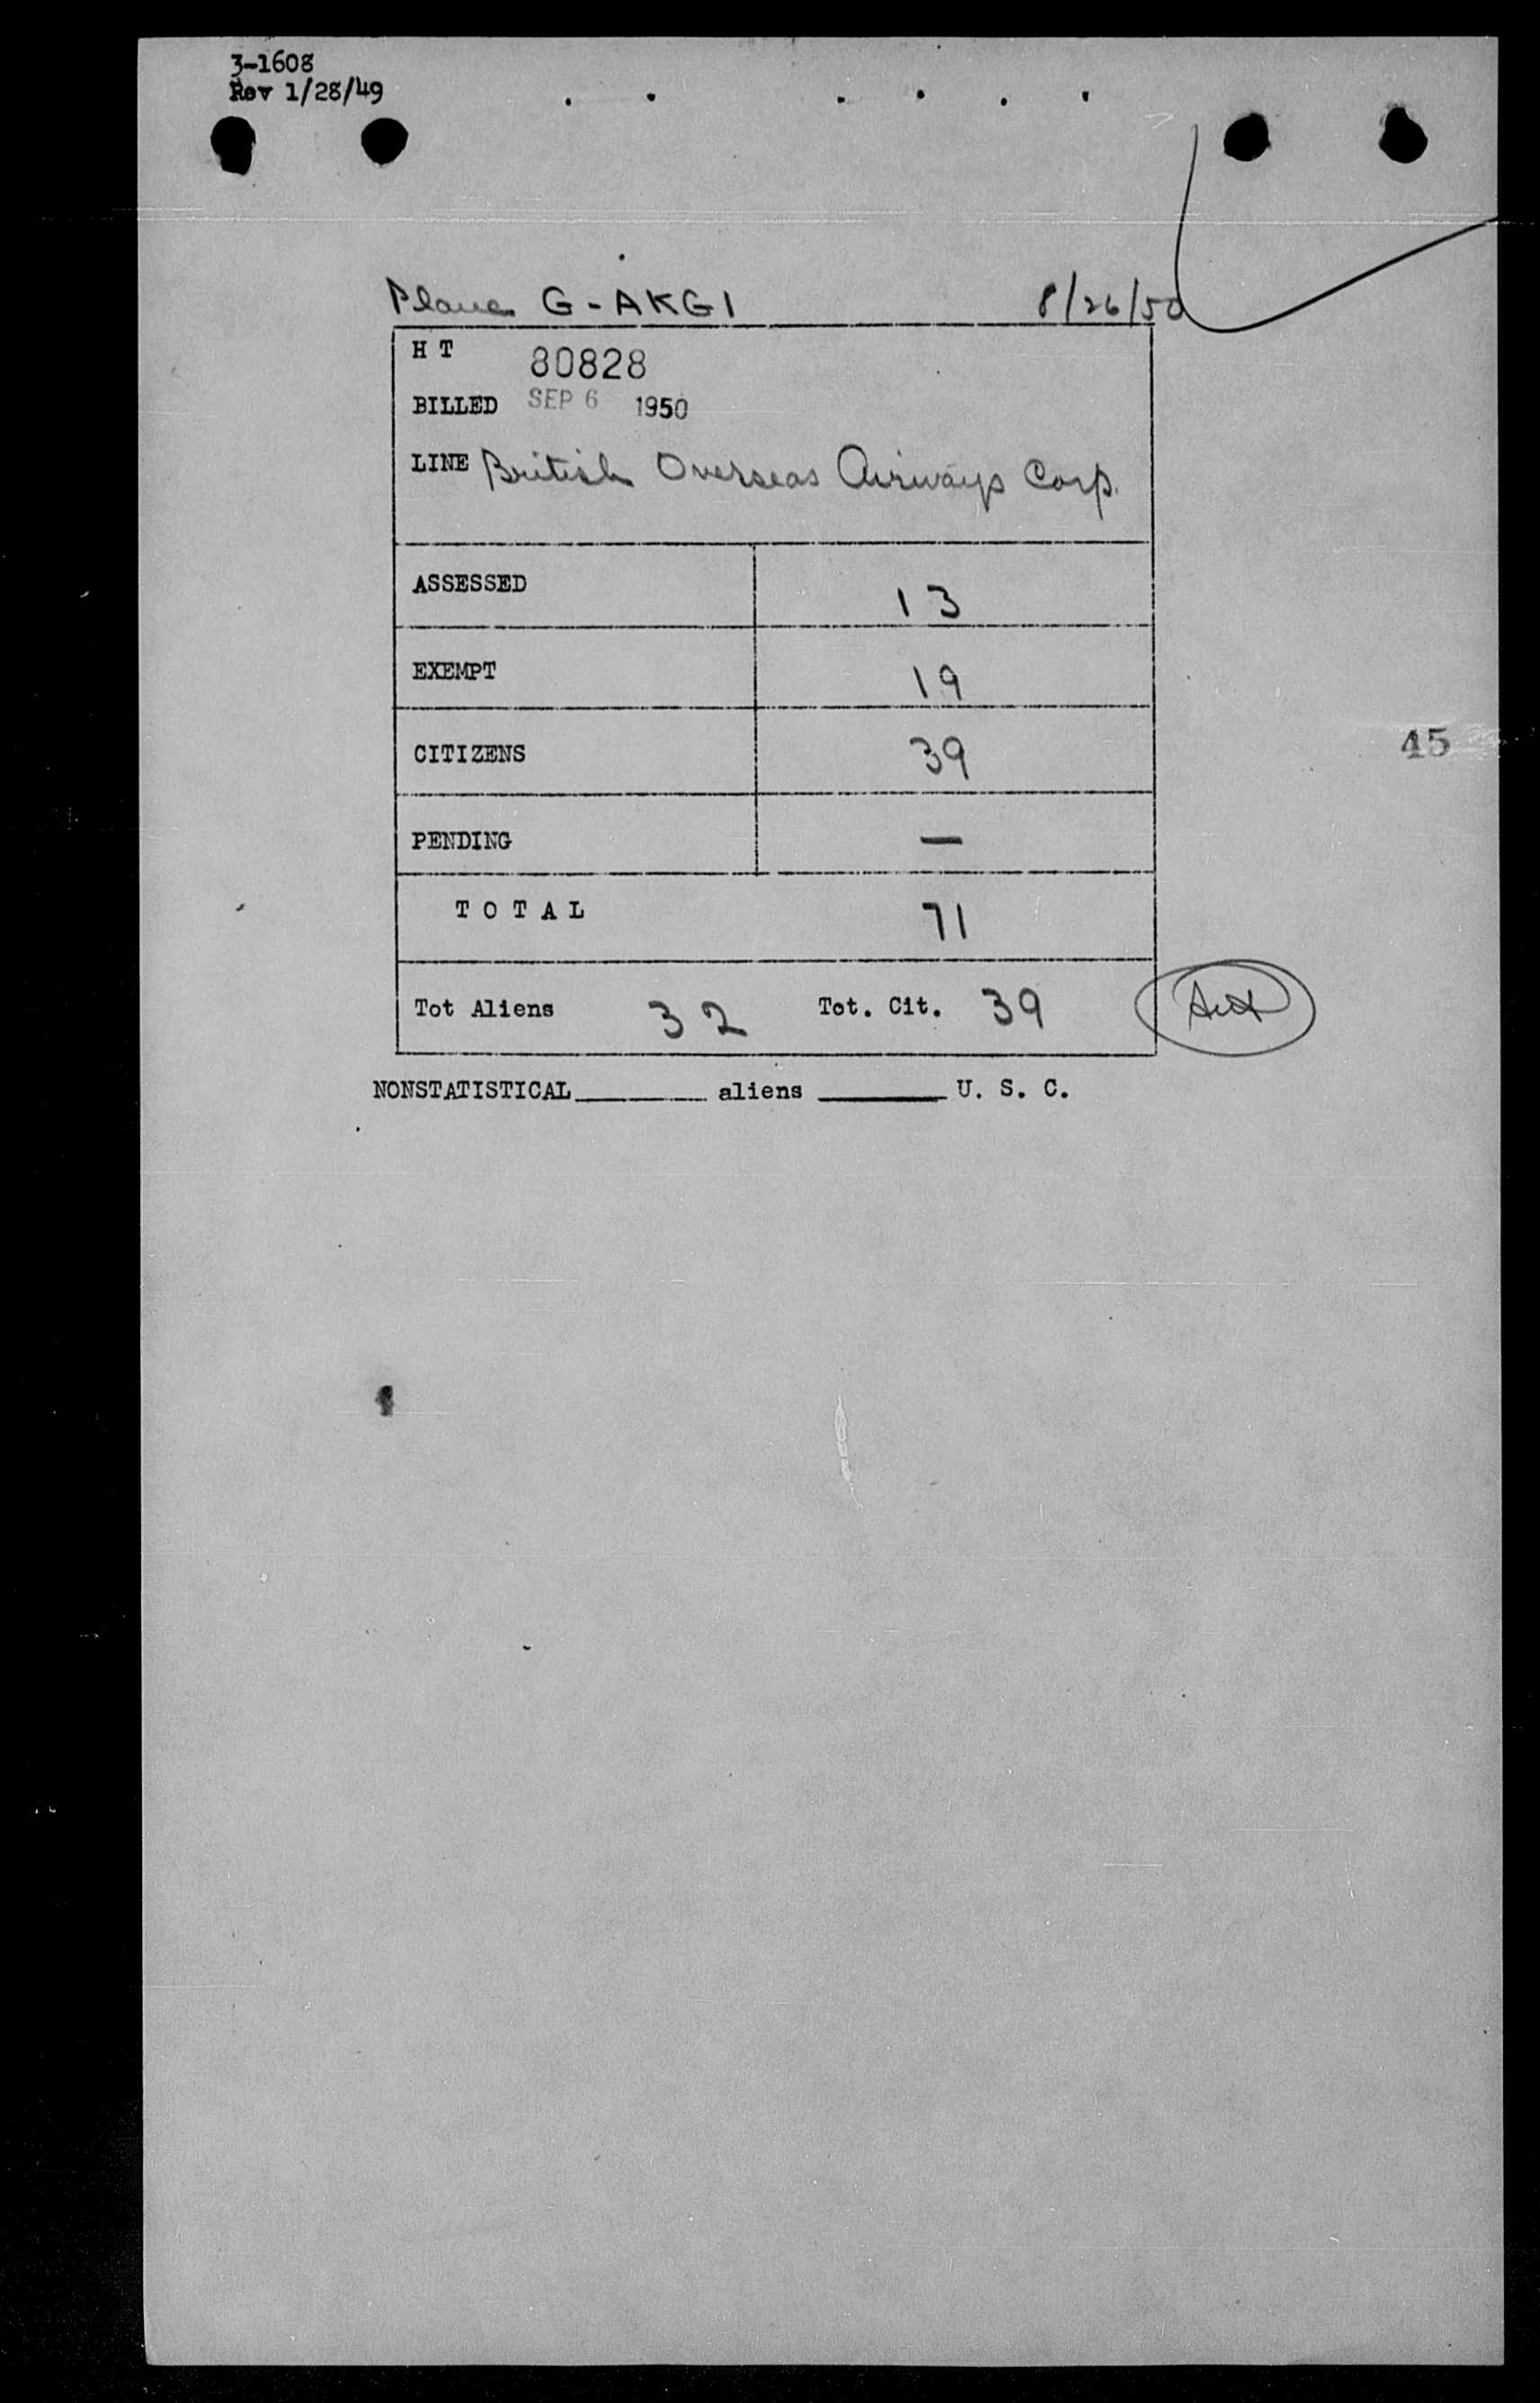 3-1608
Rev 1/28/49
Plane G-AKGI 8/26/50
H T 80828
BILLED SEP 6 1950
LINE British Overseas Airways Corp.
ASSESSED 13
EXEMPT 19
CITIZENS 39
45
PENDING —
T O T A L 71
Tot Aliens 32 Tot. Cit. 39
NONSTATISTICAL______ aliens ______ U. S. C.